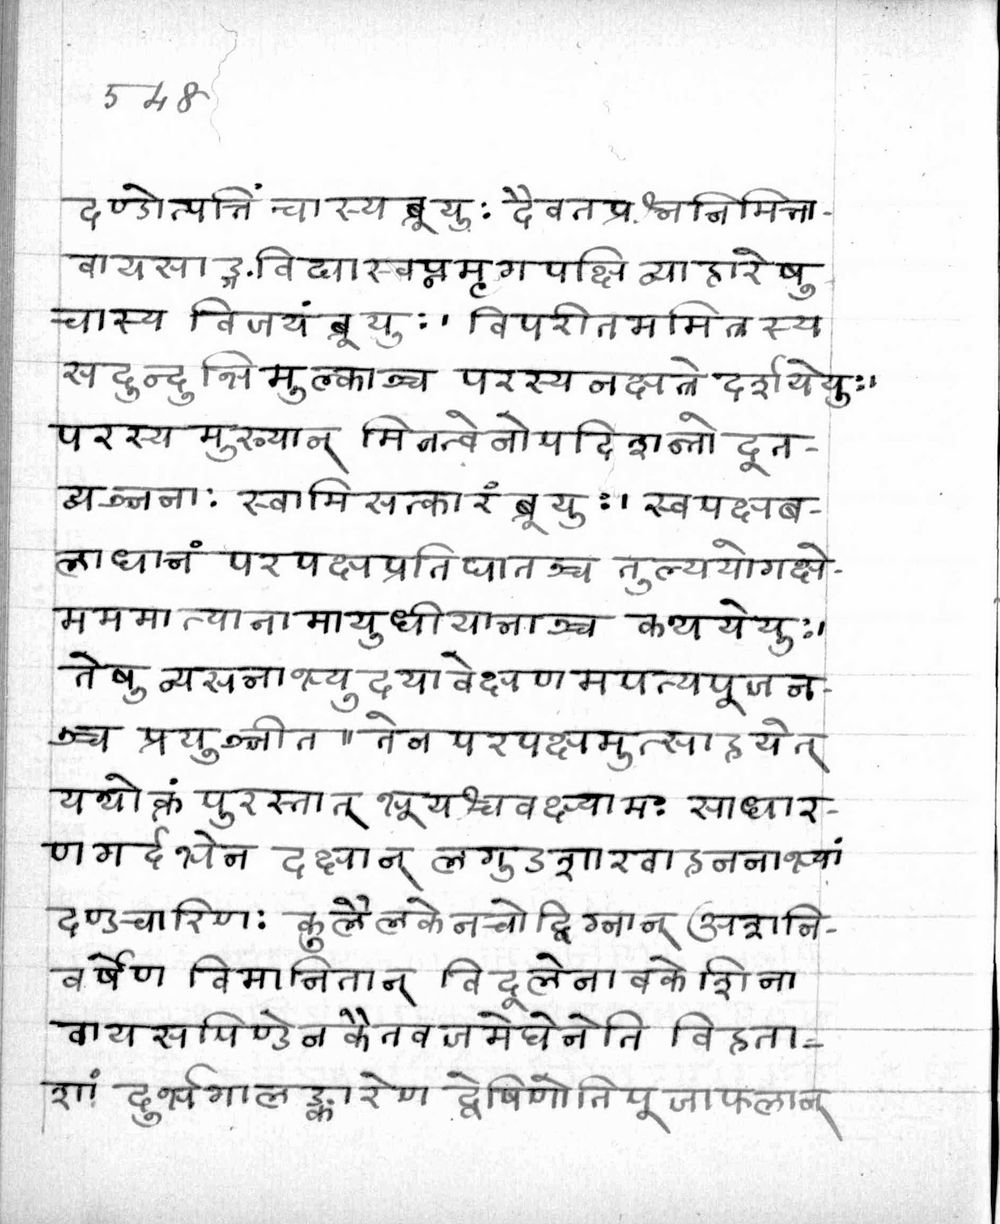 548
दण्डोत्पत्तिं चास्य ब्रूयुः दैवतप्रश्ननिमित्त-
वायसाङ्गविद्यास्वप्नमृगपक्षिव्याहारेषु
चास्य विजयं ब्रूयुः। विपरीतममित्रस्य
सदुन्दुभिमुल्काञ्च परस्य नक्षत्रे दर्शयेयुः।
परस्य मुख्यान् मित्रत्वेनोपदिशन्तो दूत-
व्यञ्जनाः स्वामिसत्कारं ब्रूयुः। स्वपक्षब-
लाधानं परपक्षप्रतिघातञ्च तुल्ययोगक्षे-
मममात्यानामायुधीयानाञ्च कथयेयुः।
तेषु व्यसनाभ्युदयावेक्षणमपत्यपूजन-
ञ्च प्रयुञ्जीत॥ तेन परपक्षमुत्साहयेत्
यथोक्तं पुरस्तात् भूयश्चवक्ष्यामः साधार-
णगर्दभेन दक्षान् लगुडशाखाहननाभ्यां
दण्डचारिणः कुलैलकेनचोद्विग्नान् अशनि-
वर्षेण विमानितान् विदूलेनावकेशिना
वायसपिण्डेन कैतवजमेघेनेति विहता-
शां दुर्भगालङ्कारेण द्वेषिणेतिपूजाफलान्